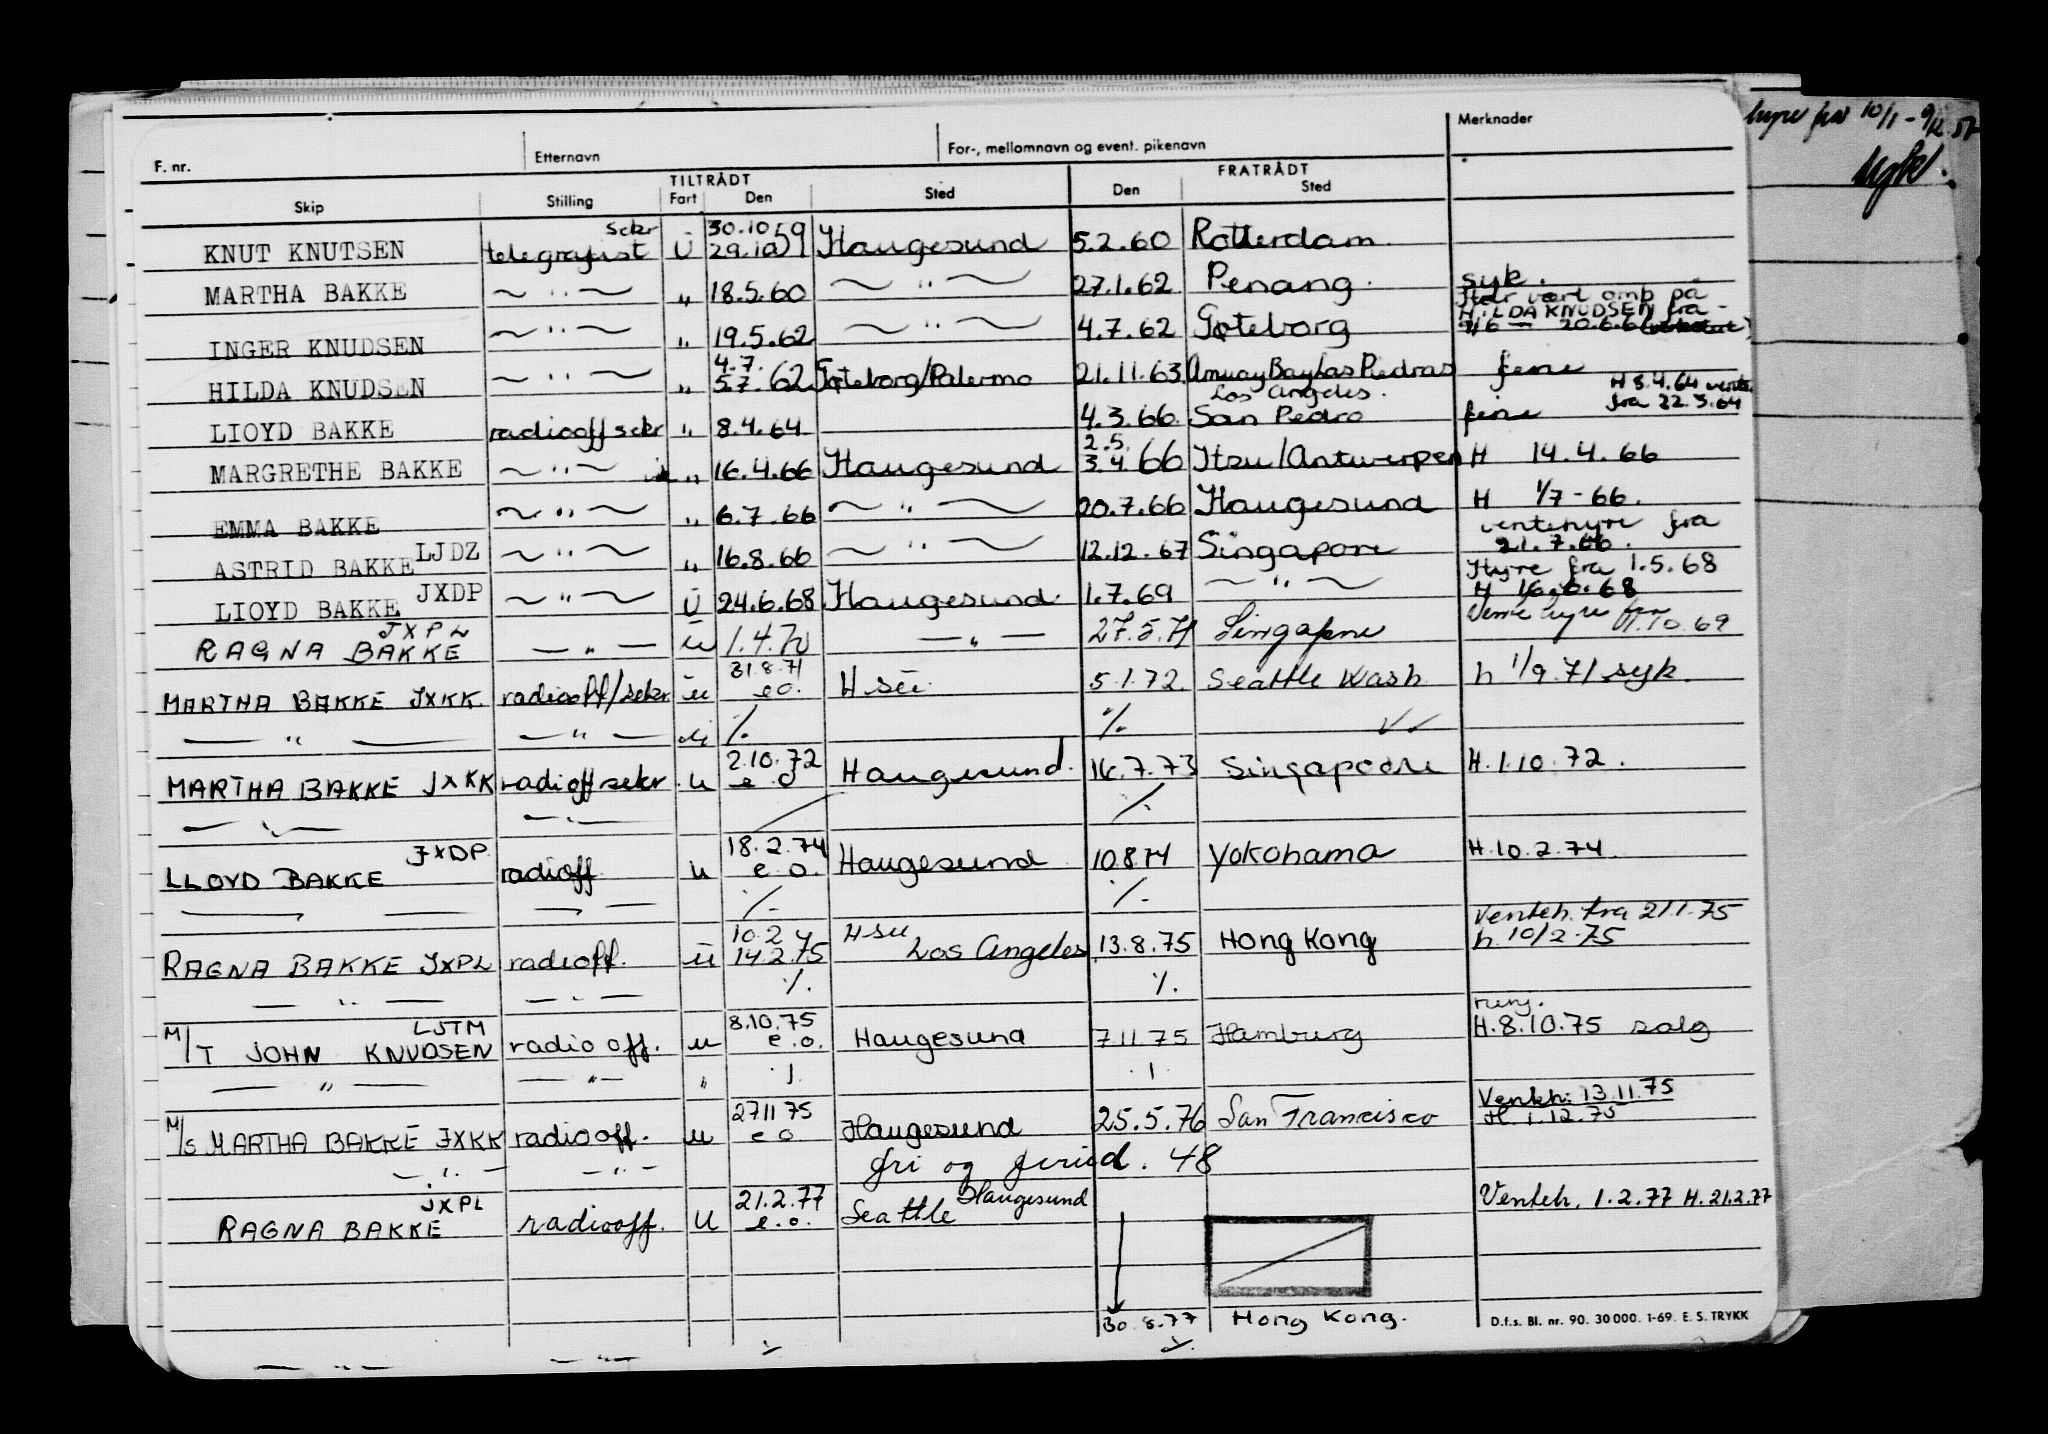 hyre fra 10/1 - 9/12 57
F. nr. Etternavn For-, mellomnavn og event. pikenavn Merknader
TILTRÅDT FRATRÅDT
Skip Stilling Fart Den Sted Den Sted
sekr 30.10
KNUT KNUTSEN telegrafist Ü 29.10 59 Haugesund 5.2.60 Rotterdam
MARTHA BAKKE ~ " ~ " 18.5.60 ~ " ~ 27.1.62 Penang. syk.
Har vært omb på
HILDA KNUDSEN fra
INGER KNUDSEN ~ " ~ " 19.5.62 ~ " ~ 4.7.62 Gøteborg
4.7.
HILDA KNUDSEN ~ " ~ " 5.7.62 Gøteborg/Palermo 21.11.63 Amuay Bay Las Piedras ferie
Los Angeles. H 8.4.64 vente fra 22.3.64
LIOYD BAKKE radiooff sekr " 8.4.64 4.3.66 San Pedro ferie
2.5.
MARGRETHE BAKKE ~ " ~ " 16.4.66 Haugesund 3.4 66 Hsu/Antwerpen H 14.4.66
EMMA BAKKE ~ " ~ " 6.7.66 ~ " ~ 20.7.66 Haugesund H 1/7-66.
ventehyre fra
ASTRID BAKKE LJDZ ~ " ~ " 16.8.66 ~ " ~ 12.12.67 Singapore 21.7.66.
Hyre fra 1.5.68
LIOYD BAKKE JXDP ~ " ~ Ü 24.6.68 Haugesund 1.7.69 ~ " ~ H 16.6.68
JXPL Vente hyre fra
RAGNA BAKKE — " — ü 1.4.70 — " — 27.5.71 Singapore 1.10.69
31.8.71
MARTHA BAKKE JXKK. radiooff/sekr ü e o. H su. 5.1.72. Seattle Wash h 1/9.71 syk.
— " — — " — ·/. ·/. √√
2.10.72
MARTHA BAKKE JXKK radioff sekr u e o Haugesund. 16.7.73 Singapoore H.1.10.72.
— " — — " — / ·/.
JXDP 18.2.74
LLOYD BAKKE radioff u e.o. Haugesund 10.8.74 Yokohama H.10.2.74.
— " — — " — ·/. ·/.
10.2 Hsu Venteh. fra 21.1.75
RAGNA BAKKE JXPL radioff. ü 14.2.75 Los Angeles 13.8.75 Hong Kong h. 10/2-75
— " — — " — ·/. ·/.
LJTM 8.10.75
M/T JOHN KNUDSEN radio off. u e.o. Haugesund 7.11.75 Hamburg H.8.10.75 salg
— " — — " — " ·/. ·/.
27.11.75 Venteh: 13.11.75
M/S MARTHA BAKKE JXKK radiooff. u e o Haugesund 25.5.76 San Francisco H. 1.12.75
— " — — " — fri og feried. 48
JXPL 21.2.77 Haugesund
RAGNA BAKKE radiooff. u e.o. Seattle Venteh. 1.2.77 H. 21.2.77
30.8.77 Hong Kong.
— " — — " — ·/. ·/.
D.f.s. Bl. nr. 90. 30 000. 1-69. E. S. TRYKK